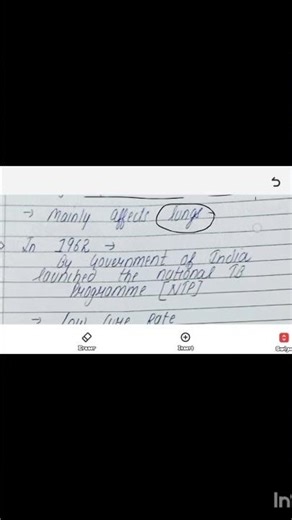 → Mainly affects lungs
→ In 1962 →
By Government of India
launched the national TB
Programme [NTP]
→ low cure rate
Eraser
Insert